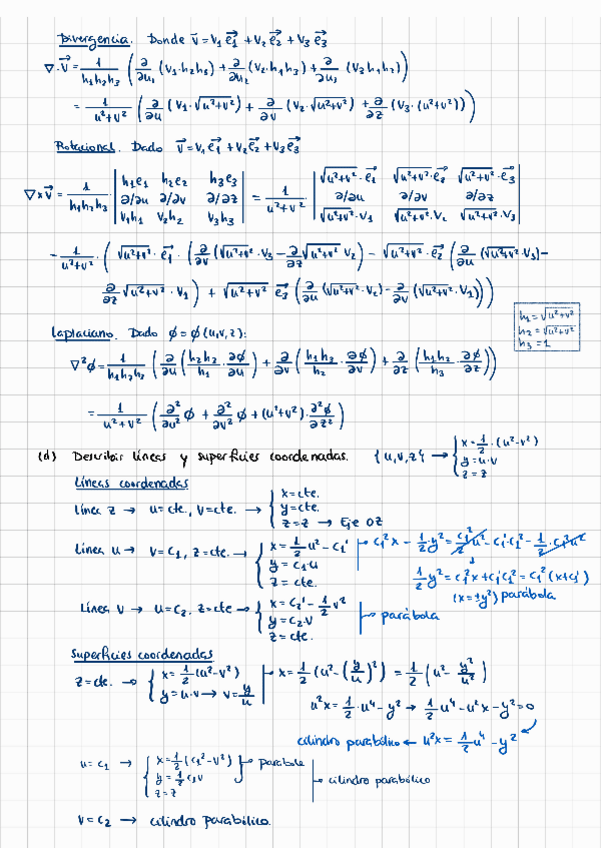 Divergencia. Donde v⃗ = V₁e⃗₁ + V₂e⃗₂ + V₃e⃗₃
∇·V⃗ = 1/(h₁h₂h₃) (∂/∂u₁ (V₁·h₂h₃) + ∂/∂u₂ (V₂·h₁h₃) + ∂/∂u₃ (V₃h₁h₂))
= 1/(u²+v²) (∂/∂u (V₁·√(u²+v²)) + ∂/∂v (V₂·√(u²+v²)) + ∂/∂z (V₃·(u²+v²)))
Rotacional. Dado v⃗ = V₁e⃗₁ + V₂e⃗₂ + V₃e⃗₃
∇×V⃗ = 1/(h₁h₂h₃) · | h₁e₁ h₂e₂ h₃e₃ ; ∂/∂u ∂/∂v ∂/∂z ; V₁h₁ V₂h₂ V₃h₃ | = 1/(u²+v²) · | √(u²+v²)·e⃗₁ √(u²+v²)·e⃗₂ √(u²+v²)·e⃗₃ ; ∂/∂u ∂/∂v ∂/∂z ; √(u²+v²)·V₁ √(u²+v²)·V₂ √(u²+v²)·V₃ |
= 1/(u²+v²) · ( √(u²+v²)·e⃗₁ · (∂/∂v (√(u²+v²)·V₃ − ∂/∂z √(u²+v²)·V₂) − √(u²+v²)·e⃗₂ (∂/∂u (√(u²+v²)·V₃) −
∂/∂z √(u²+v²)·V₁) + √(u²+v²) e⃗₃ (∂/∂u (√(u²+v²)·V₂) − ∂/∂v (√(u²+v²)·V₁)))
h₁ = √(u²+v²)
h₂ = √(u²+v²)
h₃ = 1
Laplaciano. Dado ϕ = ϕ(u,v,z):
∇²ϕ = 1/(h₁h₂h₃) (∂/∂u (h₂h₃/h₁ · ∂ϕ/∂u) + ∂/∂v (h₁h₃/h₂ · ∂ϕ/∂v) + ∂/∂z (h₁h₂/h₃ · ∂ϕ/∂z))
= 1/(u²+v²) (∂²/∂u² ϕ + ∂²/∂v² ϕ + (u²+v²)·∂²ϕ/∂z²)
(d) Describir líneas y superficies coordenadas. {u,v,z} → { x = 1/2·(u²−v²)
y = u·v
z = z
Líneas coordenadas
Línea z → u = cte, v = cte. → { x = cte.
y = cte.
z = z → Eje OZ
Línea u → v = c₁, z = cte. → { x = 1/2 u² − c₁'
y = c₁u
z = cte.
c₁²x − 1/2·y² = c₁²/2 u² − c₁'c₁² − 1/2·c₁²u²
1/2 y² = c₁²x + c₁'c₁² = c₁²(x + c₁')
(x = +y²) parábola
Línea v → u = c₂, z = cte → { x = c₂' − 1/2 v²
y = c₂·v
z = cte.
parábola
Superficies coordenadas
z = cte. → { x = 1/2 (u²−v²)
y = u·v → v = y/u
x = 1/2 (u² − (y/u)²) = 1/2 (u² − y²/u²)
u²x = 1/2·u⁴ − y² → 1/2 u⁴ − u²x − y² = 0
cilindro parabólico ← u²x = 1/2 u⁴ − y²
u = c₁ → { x = 1/2 (c₁²−v²)
y = 1/2 c₁v
z = z
parábola
cilindro parabólico
v = c₂ → cilindro parabólico.